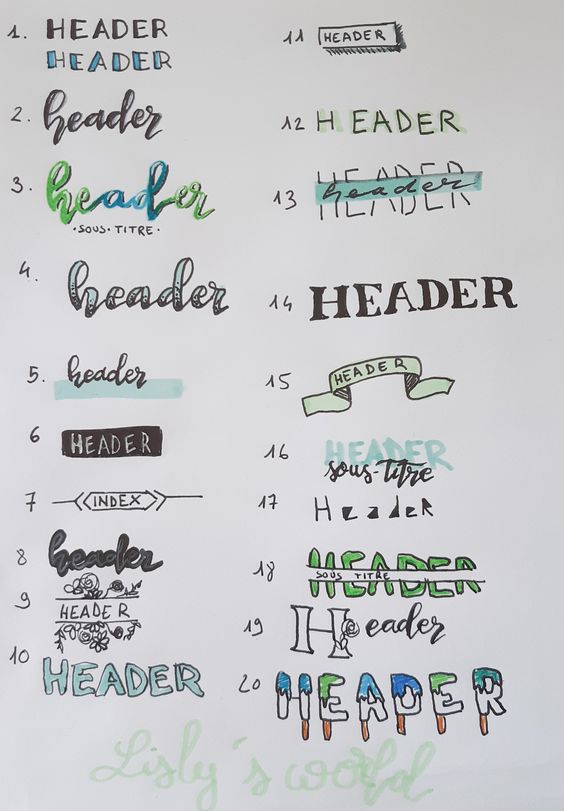 1. HEADER
HEADER
2. header
3. header
• SOUS • TITRE •
4. header
5. header
6 HEADER
7 INDEX
8 header
9 HEADER
10 HEADER
11 HEADER
12 HEADER
13 HEADER
header
14 HEADER
15 HEADER
16 HEADER
sous-titre
17 HeadeR
18 HEADER
SOUS TITRE
19 Header
20 HEADER
Lisly's world